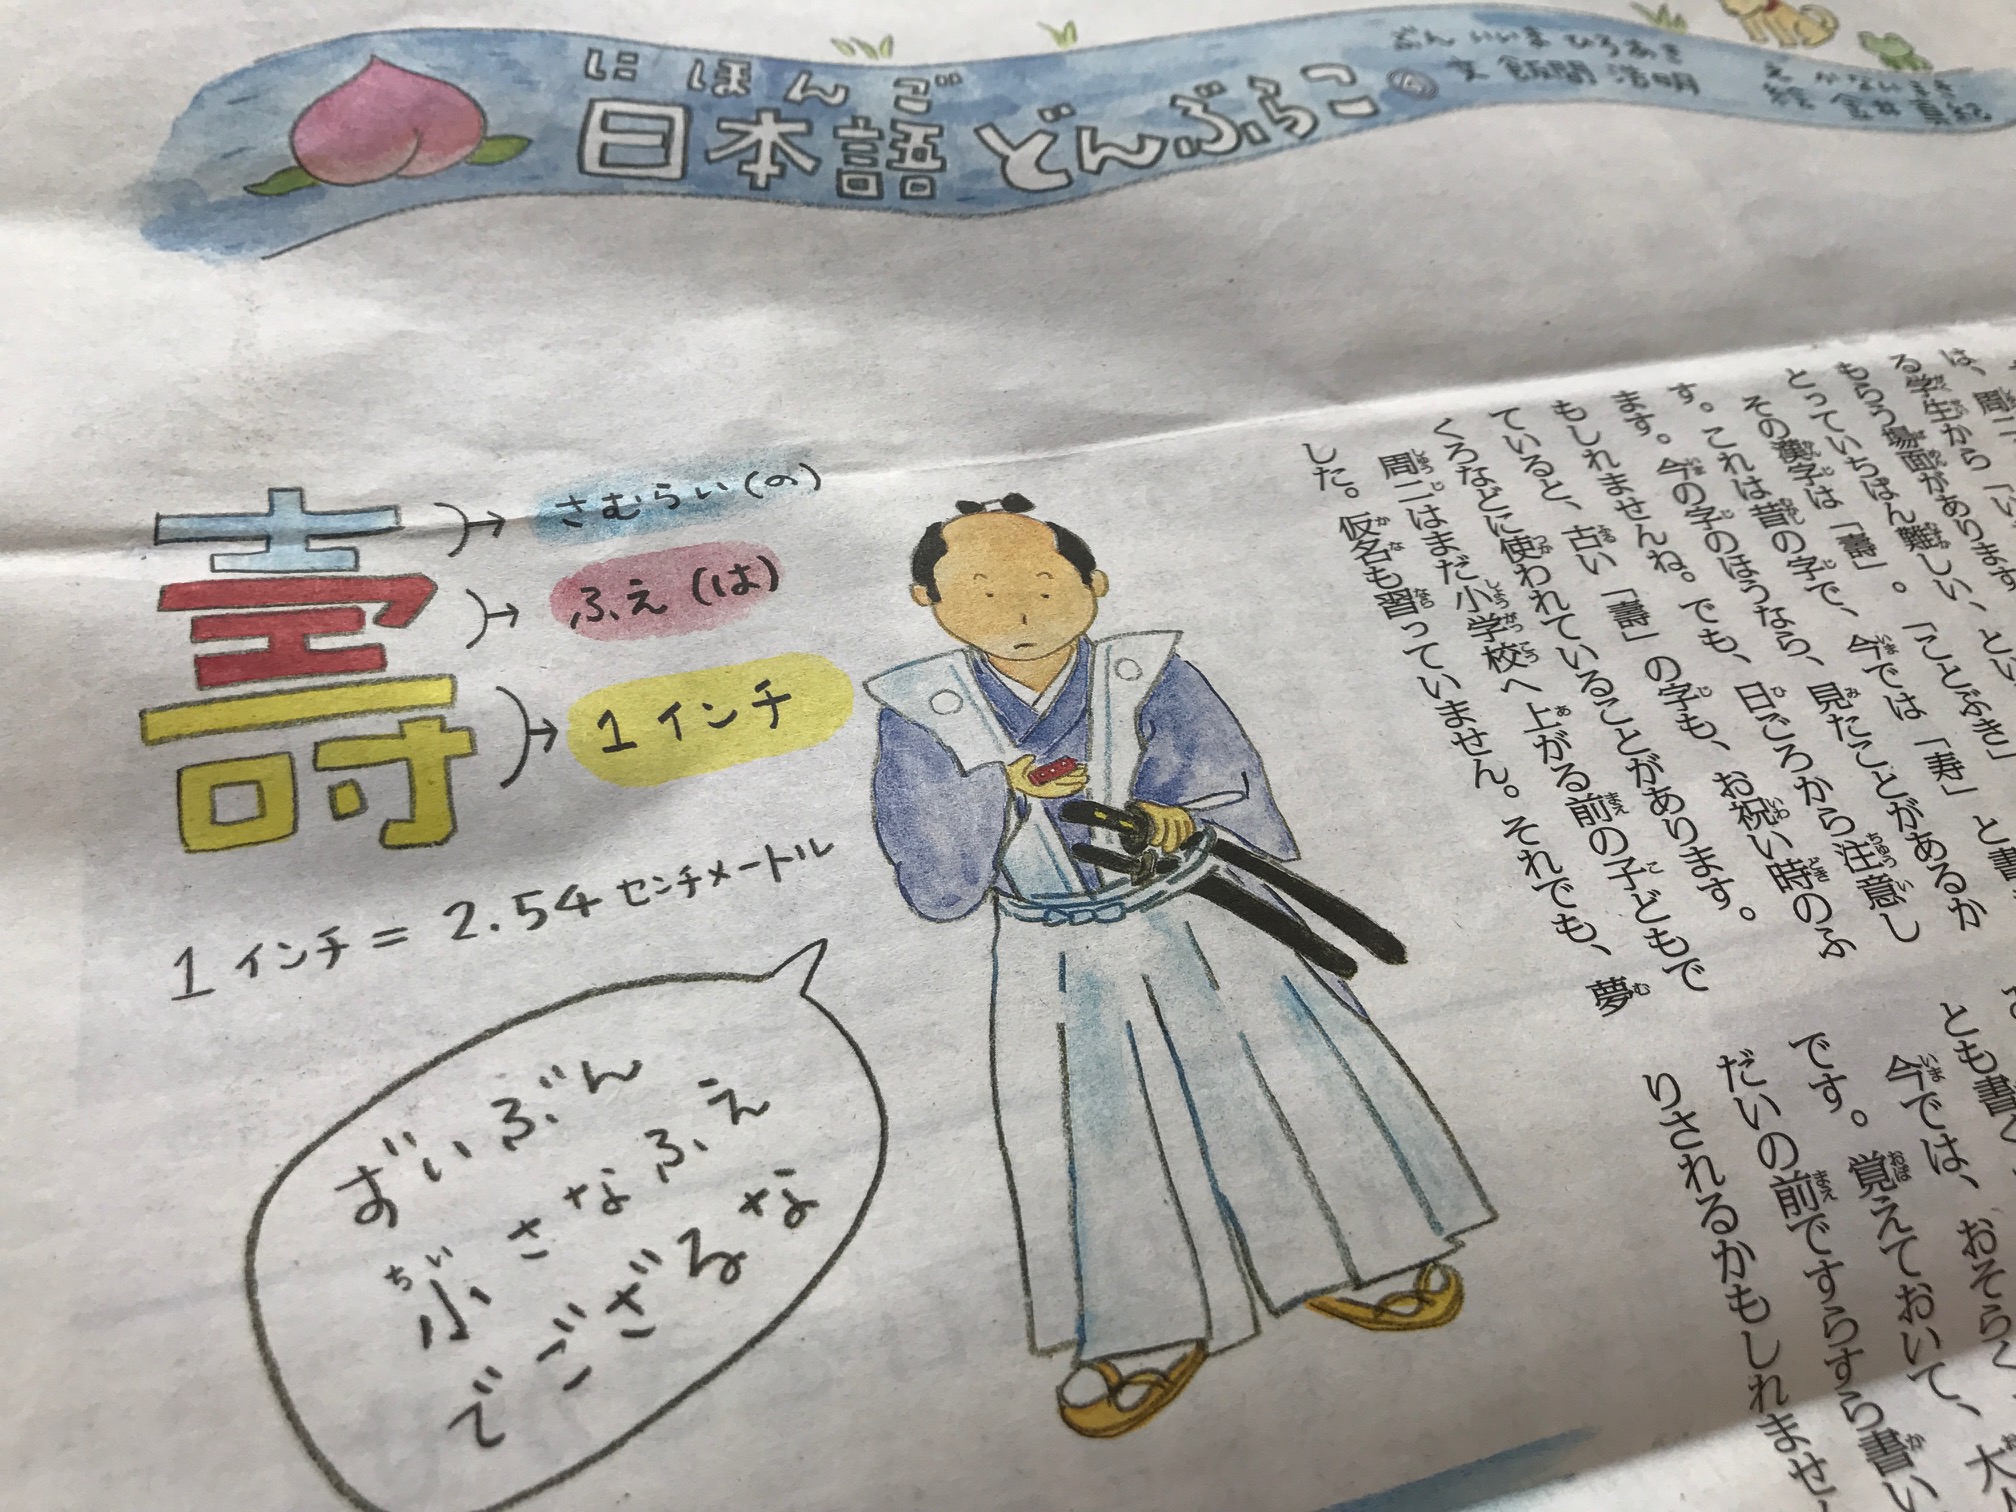 にほんご
日本語どんぶらこ
ぶん いいま ひろあき
文 飯間 浩明
え かない まき
絵 金井 真紀
壽
さむらい(の)
ふえ(は)
1インチ
1インチ=2.54センチメートル
ずいぶん
小さなふえ
でござるな
る学生から「い
もらう場面があります
とっていちばん難しい、とい
その漢字は「壽」。「ことぶき」
す。これは昔の字で、今では「寿」と書
ます。今の字のほうなら、見たことがあるか
もしれませんね。でも、日ごろから注意し
ていると、古い「壽」の字も、お祝い時のふ
くろなどに使われていることがあります。
周二はまだ小学校へ上がる前の子どもで
した。仮名も習っていません。それでも、夢
とも書く
今では、おそらく
です。覚えておいて、大
だいの前ですらすら書い
りされるかもしれませ